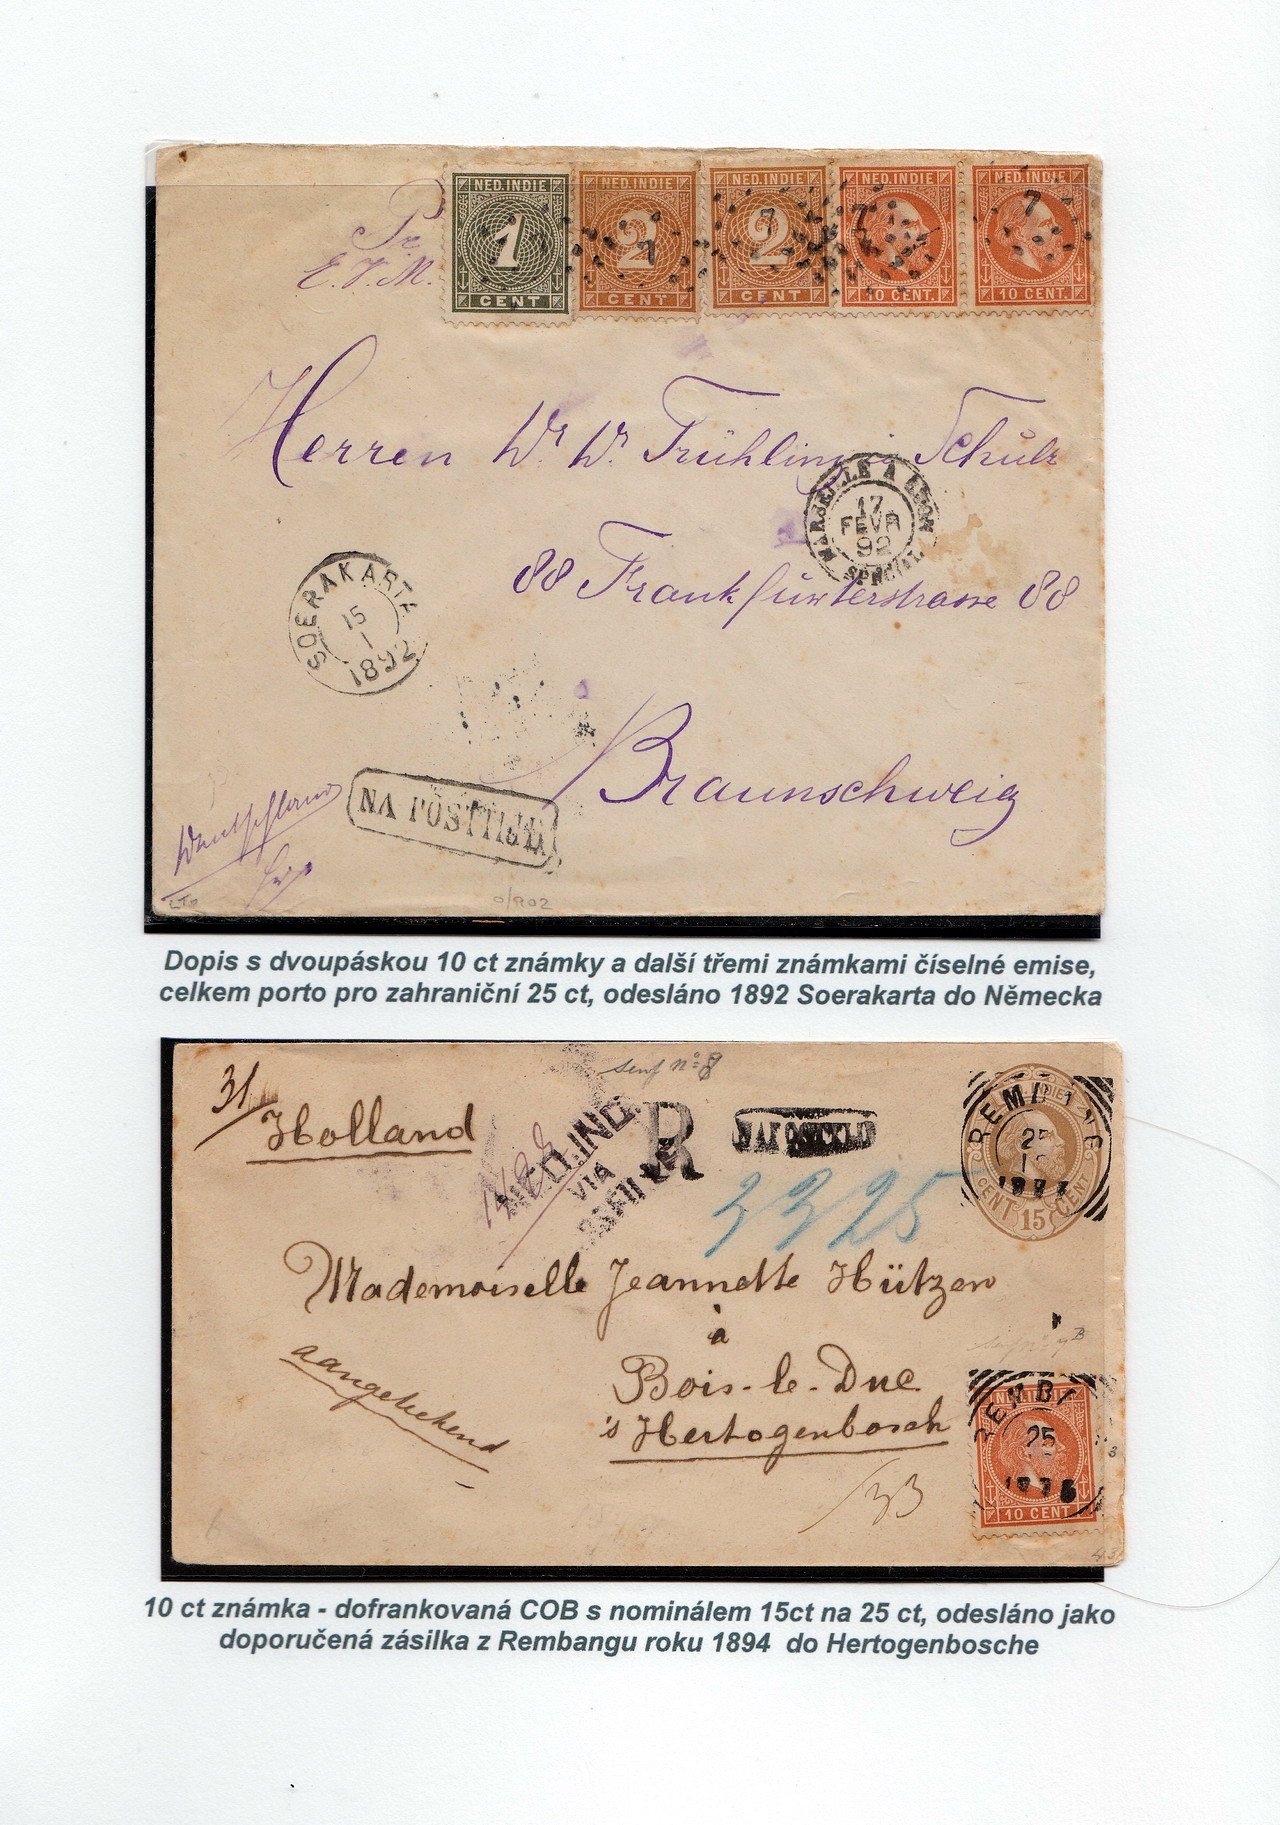 NED. INDIE NED. INDIE NED. INDIE NED. INDIE NED. INDIE
1 2 2
7 7 7 7
CENT CENT CENT 10 CENT. 10 CENT.
Pr
E.V.M.
Herren Wr. Wr. Frühling Schulz
MARSEILLE A LYON
17
FEVR
92
SPECIAL
88 Frankfurterstrasse 88
SOERAKARTA
15
1
1892
Braunschweig
NA POSTTIJD
Deutschland
0/902
Dopis s dvoupáskou 10 ct známky a další třemi známkami číselné emise,
celkem porto pro zahraniční 25 ct, odesláno 1892 Soerakarta do Německa
senf no: 8
31
Holland
NED.IND.
VIA
R
NA POSTTIJD
REMBANG
25
15
CENT CENT
33 25
Mademoiselle Jeannette Hützen
à
Bois-le-Duc
's Hertogenbosch
aangetekend
33
NED. INDIE
REMB
25
10 CENT
10 ct známka - dofrankovaná COB s nominálem 15ct na 25 ct, odesláno jako
doporučená zásilka z Rembangu roku 1894 do Hertogenbosche